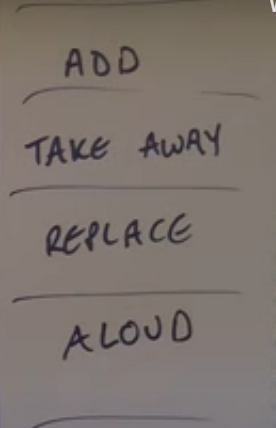 ADD
TAKE AWAY
REPLACE
ALOUD